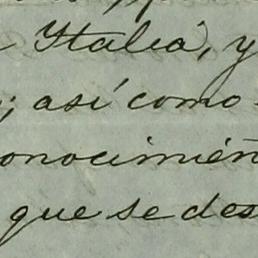 Italia, y
; así como
onocimien
que se des